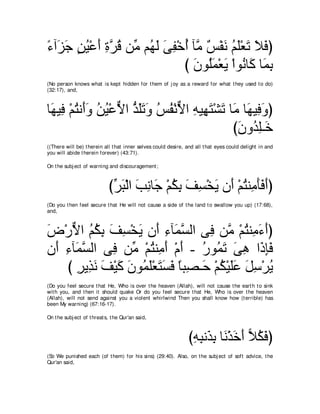 (فَلاَ تَعْلَمُ نَفْسٌ مَّآ أُخْفِىَ لَهُم مِّن قُرَّةِ أَعْيُنٍ جَزَآءً
بِمَا كَانُواْ يَعْمَلُونَ )
(No person knows what is kept hidden for them of joy as a reward for what they used to do)
(32:17), and,
(وَفِيهَا مَا تَشْتَهِيهِ الاٌّنْفُسُ وَتَلَذُّ الاٌّعْيُنُ وَأَنتُمْ فِيهَا
خَـلِدُونَ)
((There will be) therein all that inner selves could desire, and all that eyes could delight in and
you will abide therein forever) (43:71).
On the subject of warning and discouragement;
(أَفَأَمِنتُمْ أَن يَخْسِفَ بِكُمْ جَانِبَ الْبَرِّ)
(Do you then feel secure that He will not cause a side of the land to swallow you up) (17:68),
and,
(أَءَمِنتُمْ مَّن فِى السَّمَآءِ أَن يَخْسِفَ بِكُمُ الاٌّرْضَ
فَإِذَا هِىَ تَمُورُ - أَمْ أَمِنتُمْ مِّن فِى السَّمَآءِ أَن
يُرْسِلَ عَلَيْكُمْ حَـصِباً فَسَتَعْلَمُونَ كَيْفَ نَذِيرِ )
(Do you feel secure that He, Who is over the heaven (Allah), will not cause the earth to sink
with you, and then it should quake Or do you feel secure that He, Who is over the heaven
(Allah), will not send against you a violent whirlwind Then you shall know how (terrible) has
been My warning) (67:16-17).
On the subject of threats, the Qur'an said,
(فَكُلاًّ أَخَذْنَا بِذَنبِهِ)
(So We punished each (of them) for his sins) (29:40). Also, on the subject of soft advice, the
Qur'an said,